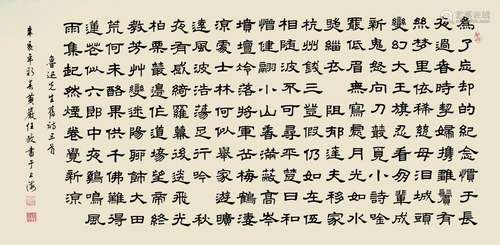 為了忘却的紀念慣于長
夜過春時挈婦攜雛鬢有
絲夢里依稀慈母淚城頭
變幻大王旗忍看朋輩成
新鬼怒向刀叢覓小詩吟
罷低眉無寫處月光如水
照緇衣 阻郁達夫移家
杭州錢王登假仍如在伍
相隨波不可尋平楚日和
憎健翮小山香滿蔽高岑
墳壇冷落將軍岳梅鶴凄
涼處士林何似舉家遊曠
遠風波浩蕩足行吟 秋
夜有感綺羅幕後送飛光
柏栗叢邊作道場望帝終
教芳草變迷陽聊飾大田
荒何來酪果供千佛難得
蓮花似六郎中夜鷄鳴風
雨集起然煙卷覺新涼
魯迅先生舊詩三首
辛亥年 黃巖任政書于上海